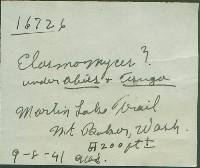 16726
Elasmomyces?
under abies + Tsuga
Martin Lake Trail
Mt. Baker, Wash.
4200 ft ±
9-8-41